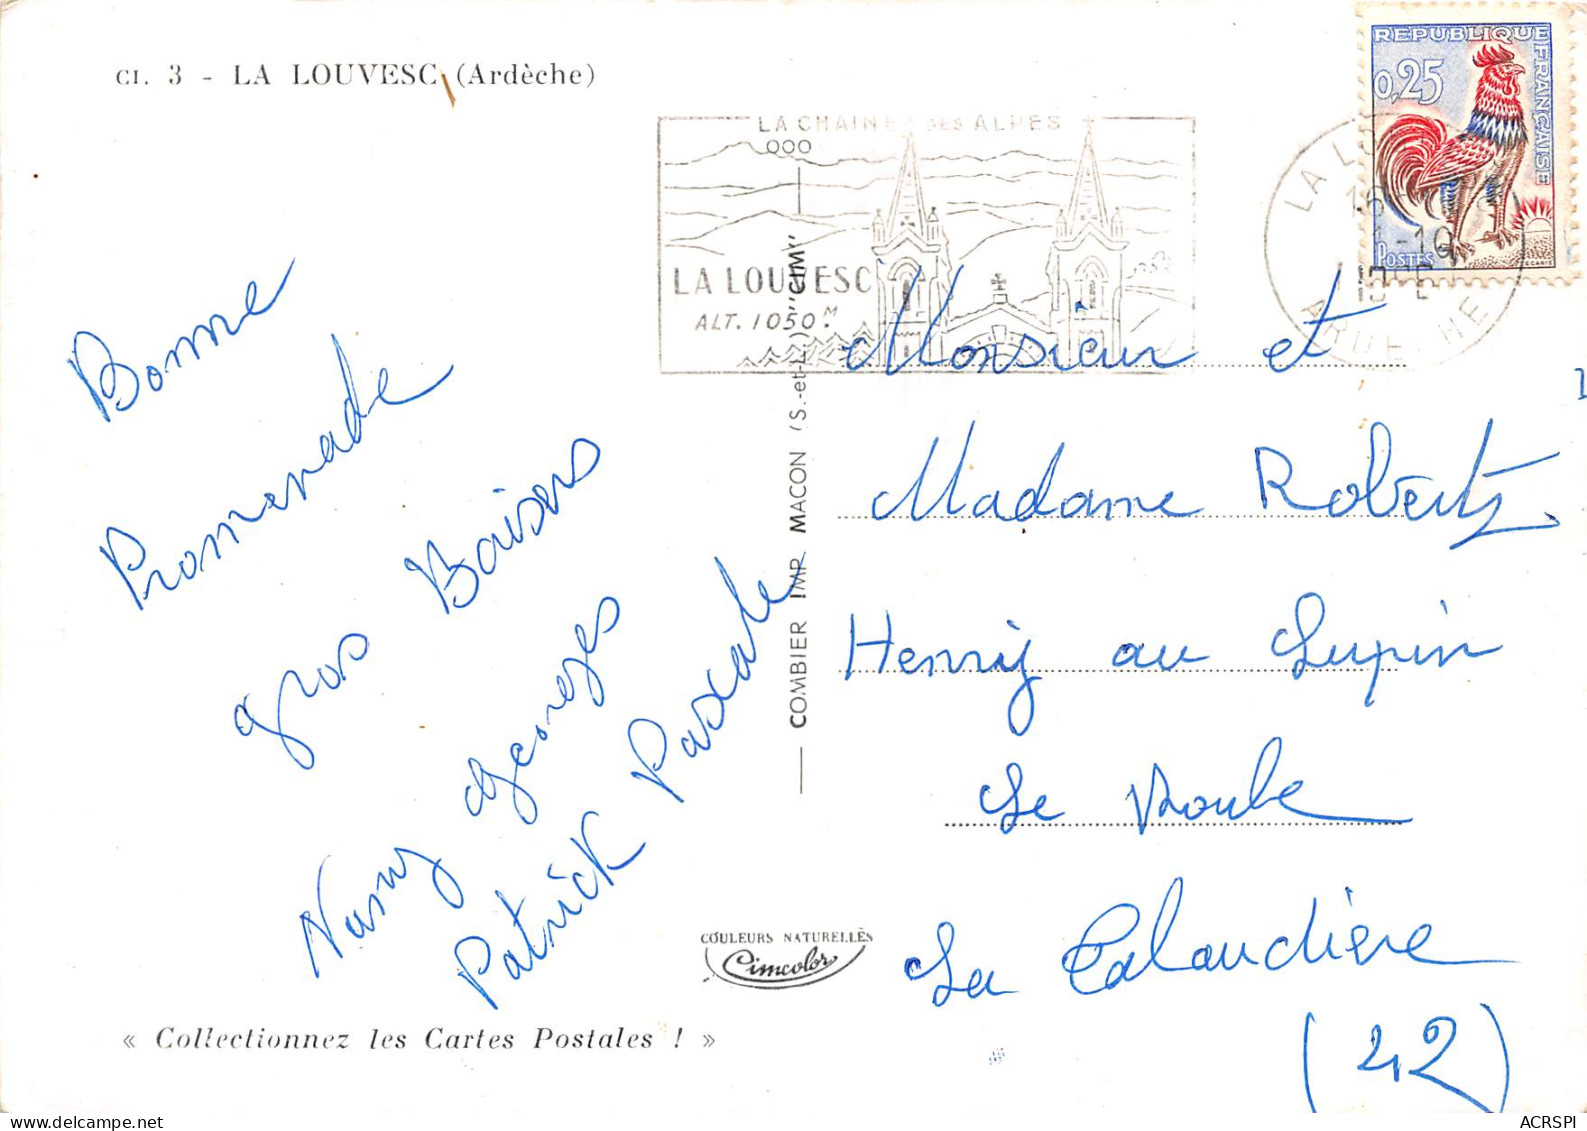 CI. 3 - LA LOUVESC (Ardèche)
REPUBLIQUE FRANÇAISE
0,25
POSTES
LA CHAINE DES ALPES
LA LOUVESC
ALT. 1050 M
ARDECHE
Bonne
Promenade
gros Baisers
Georges
Patrick Pascale
COMBIER IMP. MACON (S.-et-L.) "CIM"
Monsieur et
Madame Robert
Henry au Lupin
La
(42)
COULEURS NATURELLES
Cimcolor
« Collectionnez les Cartes Postales ! »
ACRSPI